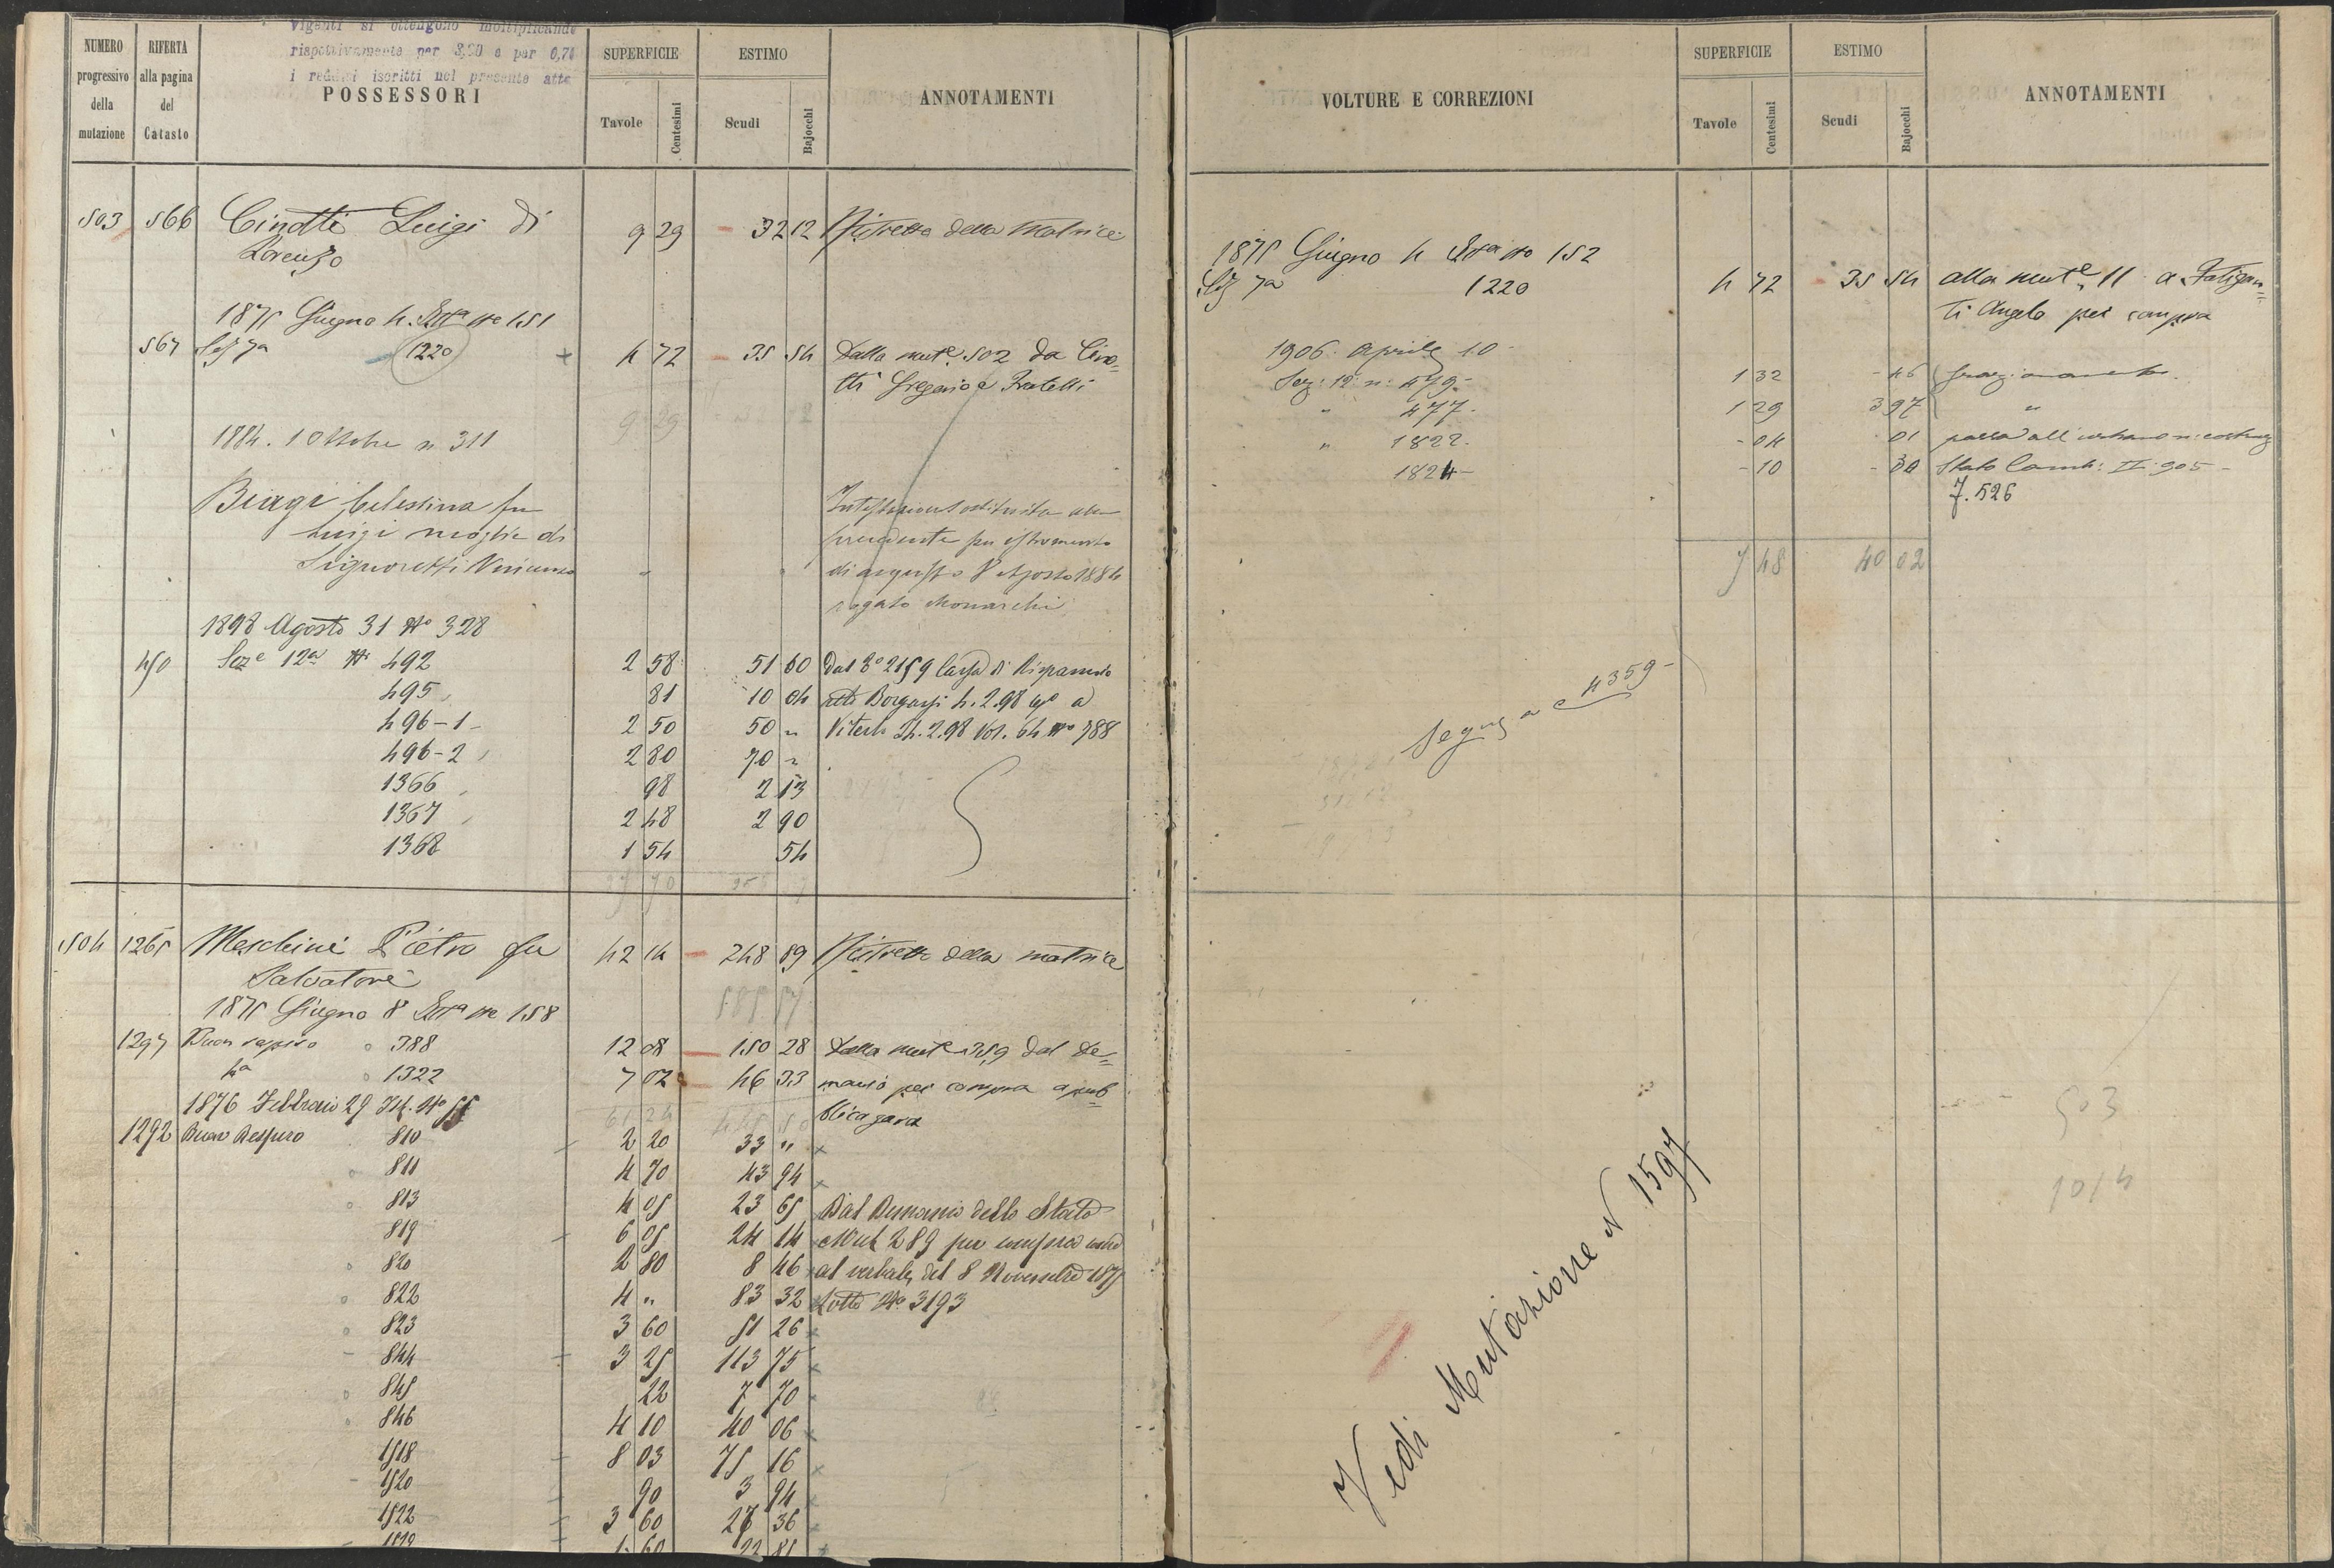 Vigenti si ottengono moltiplicando
rispettivamente per 3,20 e per 0,70
i redditi iscritti nel presente atto
NUMERO progressivo della mutazione
RIFERTA alla pagina del Catasto
POSSESSORI
SUPERFICIE
Tavole Centesimi
ESTIMO
Scudi Bajocchi
ANNOTAMENTI
503 566 Cinotti Luigi di 9 29 32 12 Ristretto della Matrice
Lorenzo
1875 Giugno 4 No 151
567 Sez 7a 1220 4 72 35 54 Dalla mute 502 da Cino=
tti Gregorio e Fratelli
9 29
1884. 1 Ottobre n. 311
Biagi Celestina fu
Luigi moglie di
Signoretti Vincenzo
precedente per istromento
8 Agosto 1884
rogato Monarchi
1898 Agosto 31 No 328
450 Seze 12a No 492 2 58 51 60 Dal
495 81 10 04
496-1 2 50 50 "
496-2 2 80 70 "
1366 98 2 13
1367 2 48 2 90
1368 1 54 54
504 1265 Meschini Pietro fu 42 14 248 89 Ristretto della matrice
Salvatore
1875 Giugno 8 No 158
1297 388 12 08 150 28 Dalla mute 359 dal De=
4a 1322 7 02 46 33 manio per compra a pub=
blica gara
1876 Febbraio 29 No 55
1292 Buon Respiro 810 2 20 33 "
811 4 70 43 94
813 4 05 23 65 Dal Demanio dello Stato
819 6 05 24 14 Mut 289 per compra
820 2 80 8 46 al verbale del 8 Novembre 1875
822 4 " 83 32 Lotto No 3193
823 3 60 51 26
844 3 25 113 75
845 22 7 70
846 4 10 40 06
1518 8 03 75 16
1520 90 3 94
1522 3 60 27 36
VOLTURE E CORREZIONI
SUPERFICIE
Tavole Centesimi
ESTIMO
Scudi Bajocchi
ANNOTAMENTI
1875 Giugno 4 No 152
Sez 7a 1220 4 72 35 54 alla mute 11 a Fatigan=
ti Angelo per compra
1906. Aprile 10
Sez: 12 n: 479 1 32 - 46
" 477 1 29 3 97 "
" 1822 - 04 01
1824 - 10 - 30
f. 526
7 48 40 02
Segue a c 4359
503
1014
Vedi Mutazione N 1597